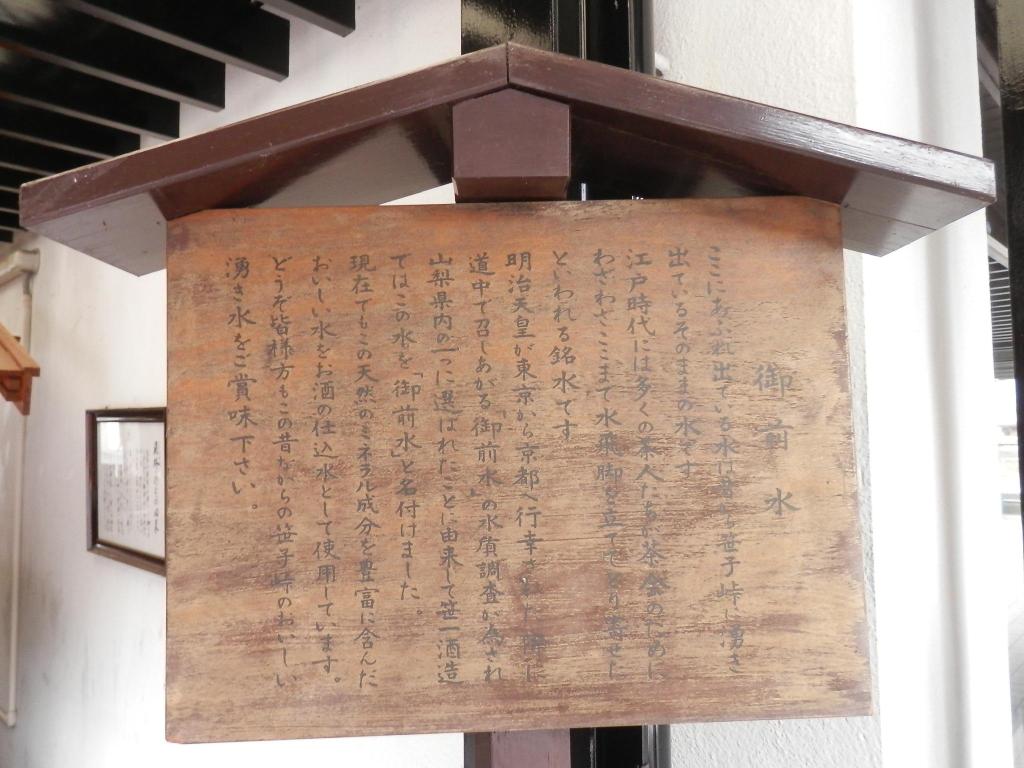 御前水
ここにあふれ出ている水は昔から笹子峠に湧き
出ているそのままの水です
江戸時代には多くの茶人たちが茶会のために
わざわざここまで水飛脚を立てとり寄せた
といわれる銘水です
明治天皇が東京から京都へ行幸された際に
道中で召しあがる「御前水」の水質調査が為され
山梨県内の一つに選ばれたことに由来して笹一酒造
ではこの水を「御前水」と名付けました。
現在でもこの天然のミネラル成分を豊富に含んだ
おいしい水をお酒の仕込水として使用しています。
どうぞ皆様方もこの昔ながらの笹子峠のおいしい
湧き水をご賞味下さい。